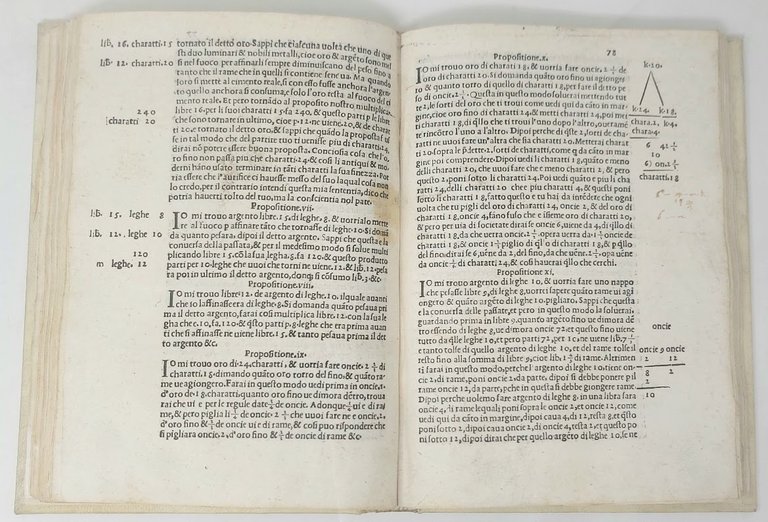 lib. 16. charatti. 15 tornato il detto oro. Sappi che ciascuna volta che uno di que
sti duo luminari & nobili metalli, cioe oro & argéto sono mel
lib. 12. charatti. 20 si nel fuoco per affinarli sempre diminuiscano del peso fino a
tanto che il rame che in quelli si contiene sene ua. Ma quando
l'oro si mette al cimento reale, si con esso fusse anchora l'argen
to quello anchora si consuma, e solo l'oro resta al fuoco del ci
mento reale. Et pero tornádo al proposito nostro, multiplica
240 libre 16. per li suoi charatti 15. fa 240, & questi parti p le libre
charatti 20 che sono tornate in ultimo, cioe p. 12. ne uiene. 20, & de charat
ti 20. e tornato il detto oro. & sappi che quádo la proposta fus
se in tal modo che del partire tuo ti uenisse piu di charatti. 24.
dirai nō potere essere buona proposta. Conciosia cosa che l'o
ro fino non passa piu che charatti. 24. & cosi li antiqui & mo
derni háno usato terminare in táti charatti la sua finezza. Po
tria essere che l'aurifice ci hauesse messo del suo laqual cosa non
lo credo, per il contrario intendi questa mia sententia, dico che
potria hauerti tolto del tuo, ma la conscientia nol pate.
Propositione. vii.
lib. 15. leghe 8 IO mi trouo argento libre. 15. di leghe. 8. & uorria lo mette
re al fuoco p affinare táto che tornasse di leghe. 10. Si doman
lib. 12. leghe 10 da quanto pesara. dipoi il detto argento. Sappi che questa e la
conuersa della passata, & per il medesimo modo si solue multi
120 plicando libre 15. cō la sua legha. 8. fa 120. & questo produtto
m leghe. 12 parti per 10. leghe che uuoi che torni ne uiene. 12. & lib. 12. pesa
ra poi in ultimo il detto argento, donq; si cōsumo lib. 3. &c.
Propositione. viii.
IO mi trouo libre. 12. de argento di leghe. 10. ilquale auanti
che io lo affinasse era di leghe. 8. Si domanda quáto pesaua pri
ma il detto argento, farai cosi multiplica libre. 12. con la sua le
gha che. 10, fa, 120. & q̄sto parti p. 8. leghe che era prima auan
ti che si affinasse ne uiene libre. 15. & tanto pesaua prima il det
to argento &c.
Propositione. ix.
IO mi trouo oro di. 24. charatti, & uorria fare oncie. 2 di
charatti. 15. dimando quáto oro torro del fino, & quáto ra
me ue agiongero. Farai in questo modo uedi prima in oncie. 1.
d'oro de 18. charatti, quanto oro fino ue dimora détro, troua
rai che ui e per le regule date di oncie. A donque ui e di ra
me, & pero piglia li di oncie. 2 che uuoi fare ne e oncie. 2.
d'oro fino & di oncie ui e di rame, & cosi puo rispondere che
si pigliara oncie. 2. d'oro fino & di oncie di rame &c.
78
Propositione. x.
IO mi trouo oro di charati 18. & uorria fare oncie. 2 de
oro di charatti 20. Si domanda quáto oro fino ui agionge
ro & quanto torro di quello di charatti 18, per fare il detto pe
so di oncie. 2 . Questa in questo modo soluerai mettendo tut
te 2, le sorti del oro che ti troui come uedi qui da cáto in mar
gine, cioe oro fino di charatti 24. & metti charatti 24, poi met
ti charatti 18, di q̄llo che ti troui l'uno dopo l'altro, ouramé
te rincōtro l'uno a l'altro. Dipoi perche di q̄ste 2, sorti de cha
ratti ne uuoi fare un'altra che sia charatti 20. Metterai charat
ti 20. sopra le p̄dette 2. sorti de charatti, come q da cáto in mar
gine poi comprendere. Dipoi uedi li charatti 18, quáto e meno
delli charatti 20, che uuoi fare che e meno charatti 2, & pero
questo 2, poni sotto li charatti 24. Poi uedi quáto e piu li cha
ratti 24, delli charatti 20 che e piu charatti 4, & questi poni
sotto li charatti 18, fatto questo e tu hai da intédere che ogni
uolta che tu pigli del oro di charatti 24, oncie 2, & del oro di
charatti 18, oncie 4, fáno fuso che e isieme oro di charatti 20,
& pero per uia de societate dirai se oncie 6, uiene da 4, di q̄llo di
charatti 18, da che uerra oncie. 2 . opera uerra da 1 d'oncie
18, & oncie 1 piglio di q̄l o di charatti 18, & p q̄llo
del fino, dirai se 6, uéne da 2, del fino, da che uéne. 2 . opa uéne
da oncie di charatti 24. & cosi hauerai q̄llo che cerchi.
Propositione xi.
IO mi trouo argento di leghe 10, & uorria fare uno nappo
che pesasse libre 9, di leghe 8, uorrei sapere quáto rame ui agi
ongero & quáto argéto di leghe 10. pigliaro. Sappi che questa
e la conuersa delle passate, et pero in questo modo la soluerai.
guardando prima in libre 9. quanto argéto fino ue dimora dé
tro essendo di leghe 8, ue dimora oncie 72. et questo fino uiene
tutto da q̄lle leghe 10, et pero parti 72, per 10, ne uiene lib. 7,
e tanto tolse di quello argento di leghe 10, et del rame tolse il
resto fino alla somma di libre 9, cioe lib. 1 di rame. Altrimen
ti farai in questo modo, perche l'argento di leghe 10, tiene on-
cie 2, di rame, poni oncie 2, da parte. dipoi si debbe ponere pil
rame oncie 12, da parte, pche in questa si debbe giongere rame
Dipoi perche uolemo fare argento di leghe 8. in una libra sara
oncie 4, di rame lequali poni sopra le oncie 2, et oncie 12, come
uedi qui da cáto in margine, dipoi caua 4, di 12, resta 8, et q̄sto
poni sotto 2, dipoi caua oncie 2, di oncie 4, resta 2, et questo po
ni sotto 12, dipoi dirai che per quello argéto di leghe 10, se ne
k. 20.
k. 24. k. 18.
chara. 2. k. 4.
chara 4.
10
charatti. 18
oncie
oncie 9 oncie
2 12
8 2
2
10